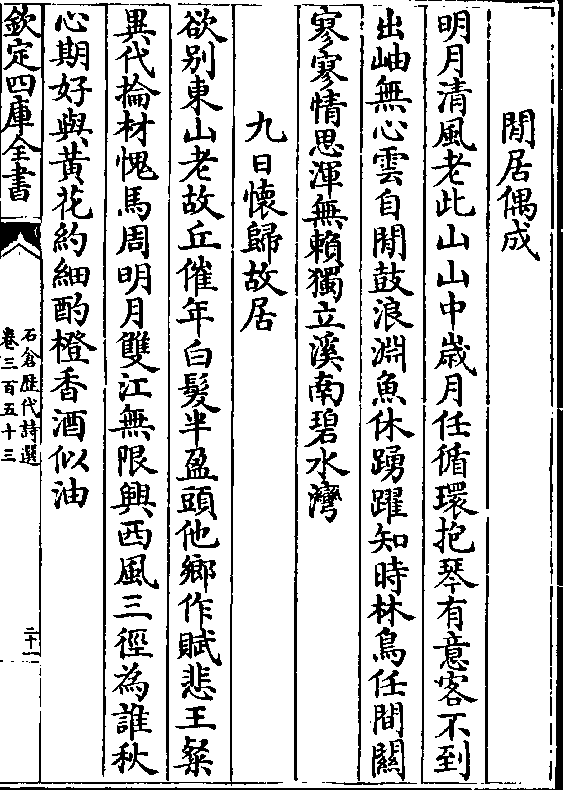 閒居偶成
明月清風老此山山中歲月任循環抱琴有意客不到
出岫無心雲自閒鼓浪淵魚休踴躍知時林鳥任間關
寥寥情思渾無賴獨立溪南碧水灣
九日懷歸故居
欲别東山老故丘催年白髮半盈頭他鄉作賦悲王粲
異代掄材愧馬周明月雙江無限興西風三徑為誰秋
心期好與黃花約細酌橙香酒似油
欽定四庫全書
石倉歴代詩選
卷三百五十三
二十一